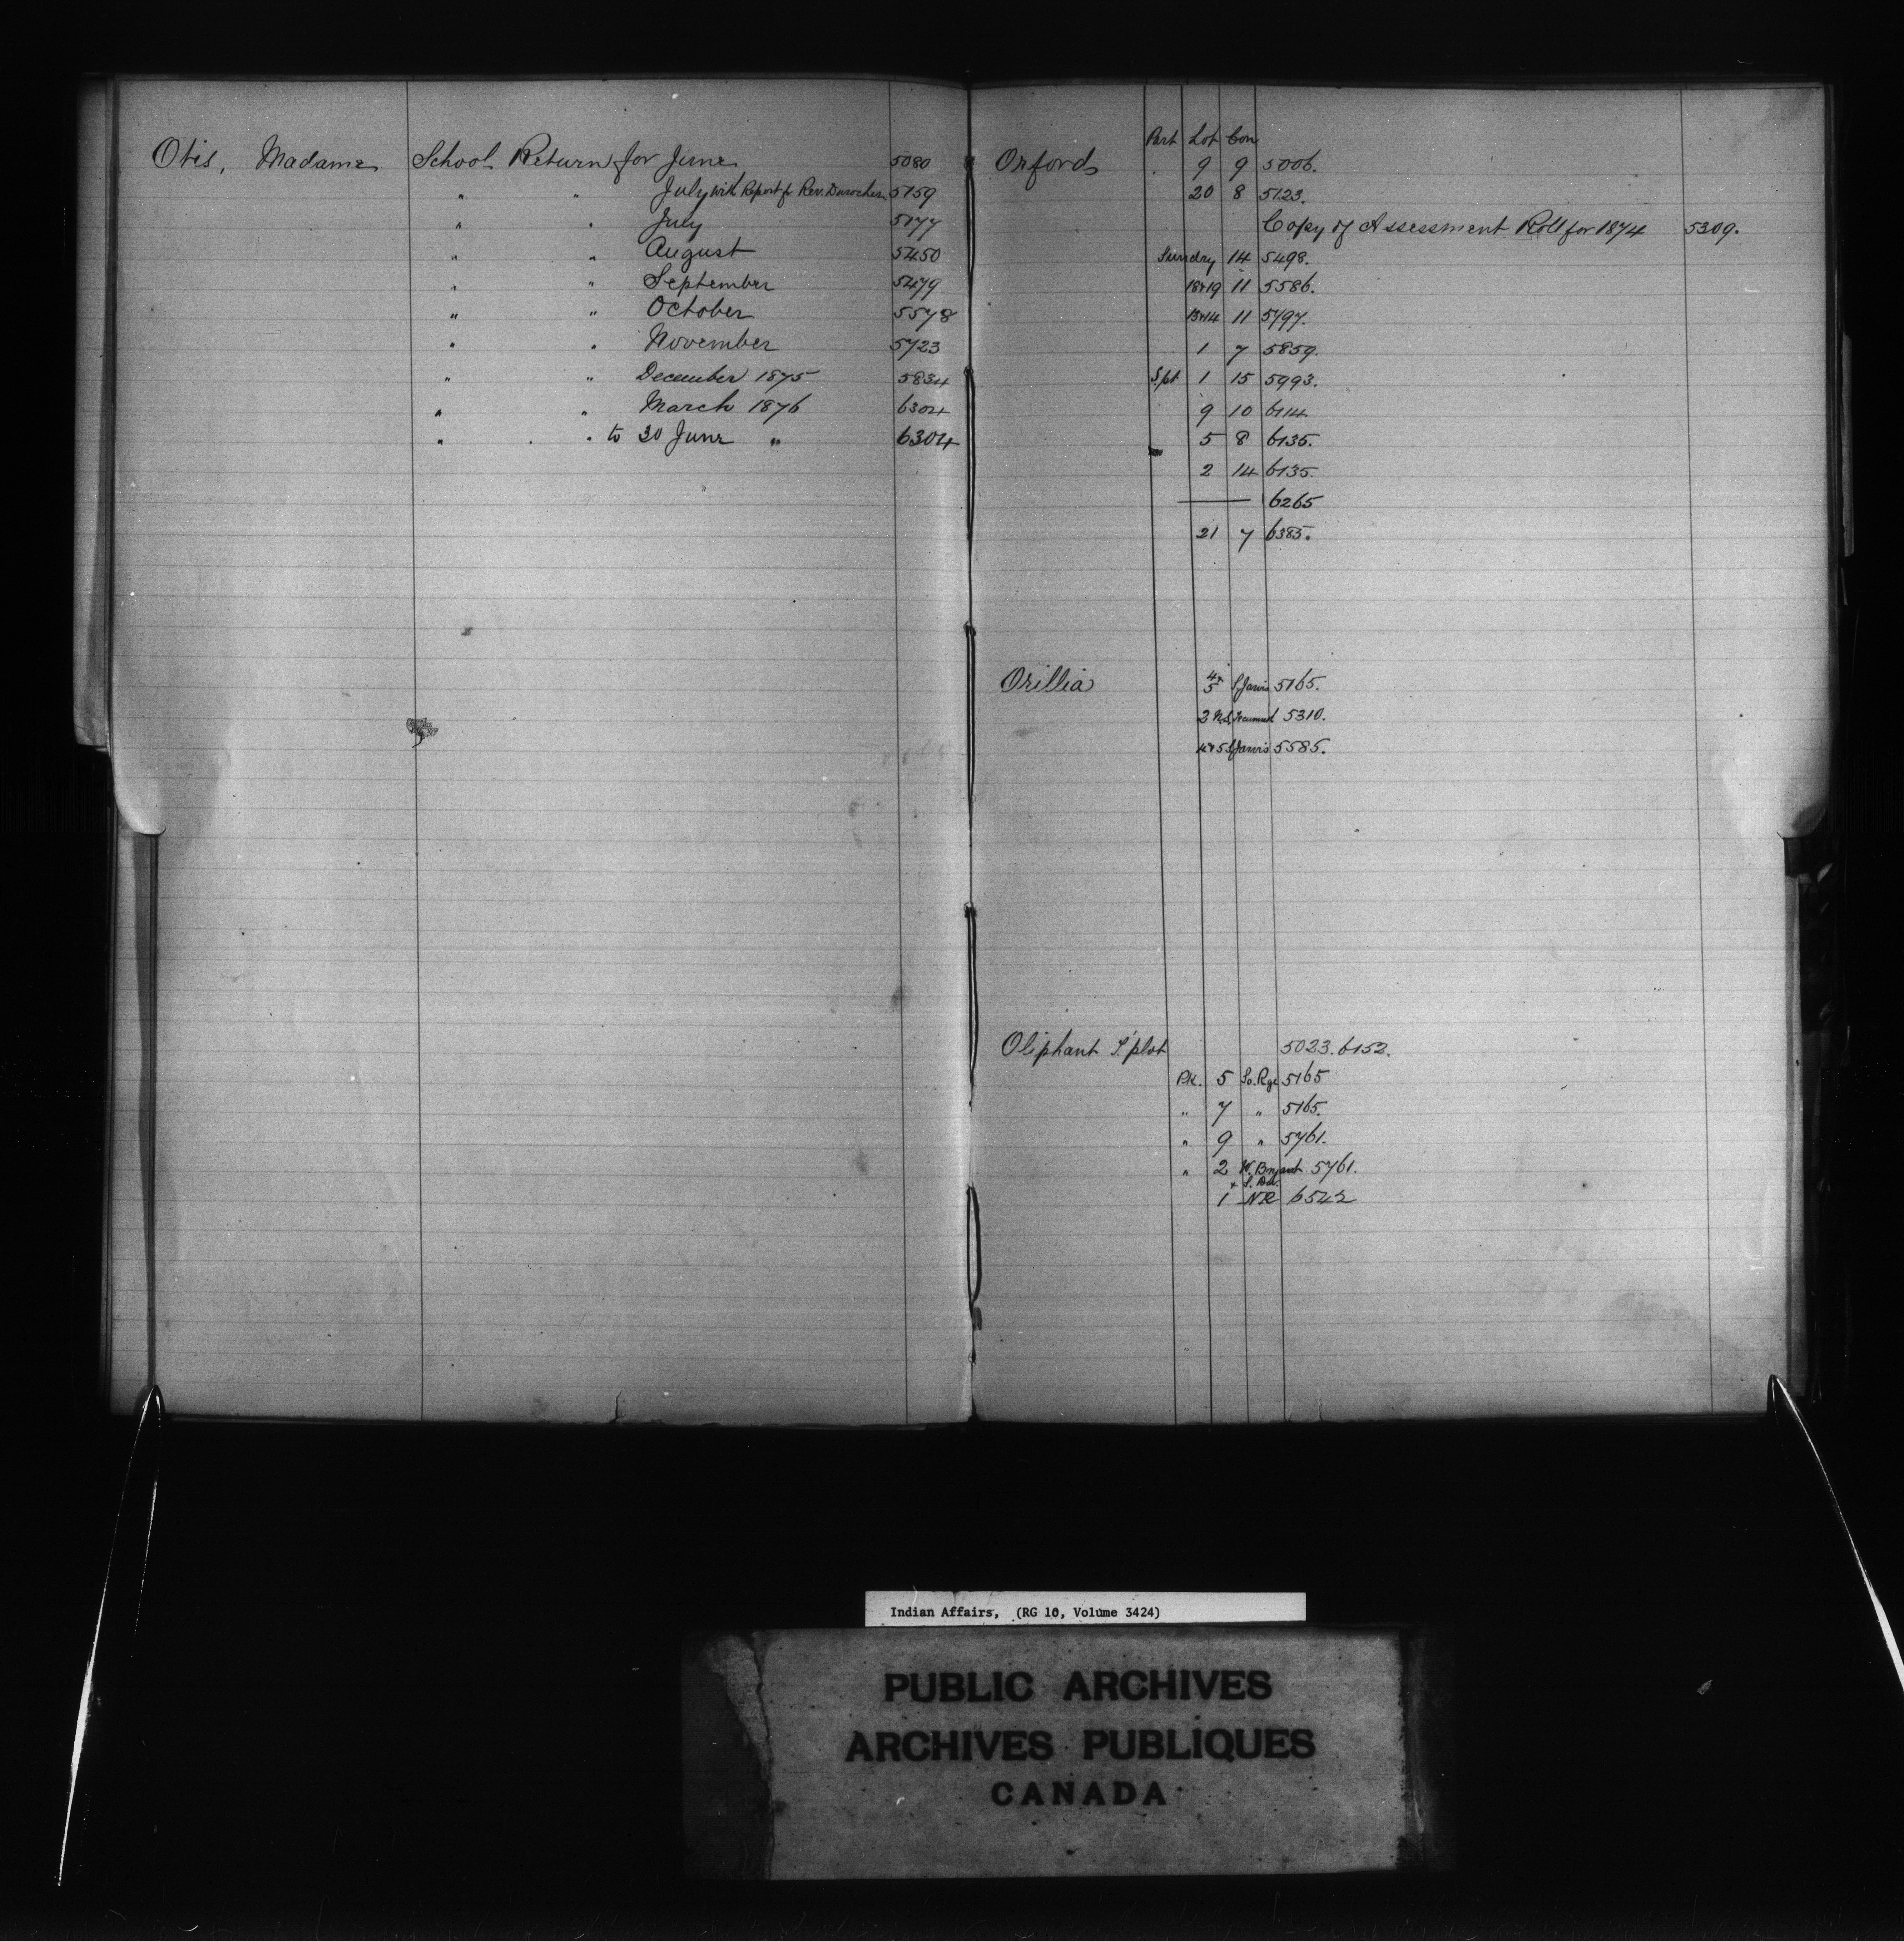 Otis, Madame School Return for June 5080
" " July with Report fr Rev. Durocher 5159
" " July 5177
" " August 5450
" " September 5479
" " October 5578
" " November 5723
" " December 1875 5834
" " March 1876 6304
" " to 30 June " 6304
Part Lot Con
Orford 9 9 5006.
20 8 5123.
Copy of Assessment Roll for 1874 5309.
Sundry 14 5498.
18&19 11 5586.
13&14 11 5797.
1 7 5859.
S.pt 1 15 5993.
9 10 6114
5 8 6135.
2 14 6135.
— 6265
21 7 6385.
Orillia 4& 5 S. Jarvis 5165.
2 N.S. 5310.
4&5 S. Jarvis 5585.
Oliphant T. plot 5023. 6152.
Pk. 5 So. Rge 5165
" 7 " 5165.
" 9 " 5761.
" 2 W. Bryant 5761.
& S. Dal.
1 NR 6542
Indian Affairs, (RG 10, Volume 3424)
PUBLIC ARCHIVES
ARCHIVES PUBLIQUES
CANADA